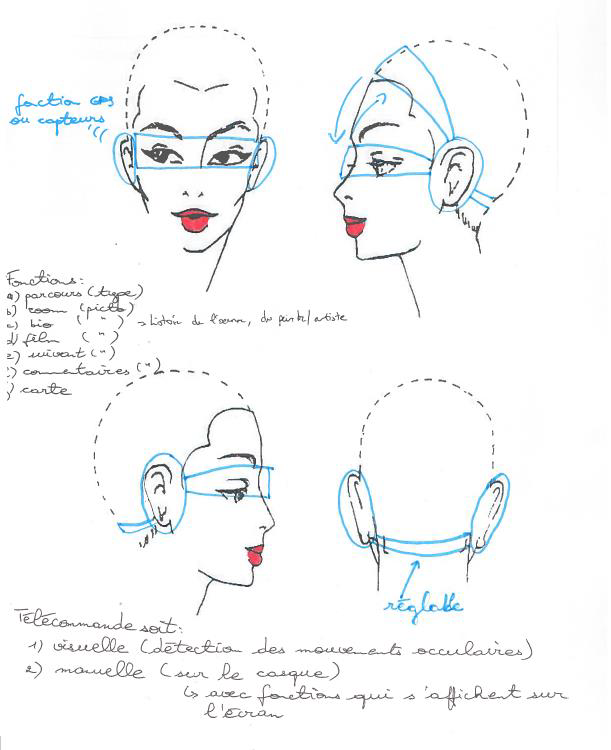 fonction GPS
ou capteurs
Fonctions:
a) parcours (type)
b) zoom (picto)
c) bio (") → histoire de l'œuvre, du peintre/artiste
d) film (")
e) suivant (")
) commentaires (")
) carte
réglable
Télécommande soit:
1) visuelle (détection des mouvements occulaires)
2) manuelle (sur le casque)
↳ avec fonctions qui s'affichent sur
l'écran